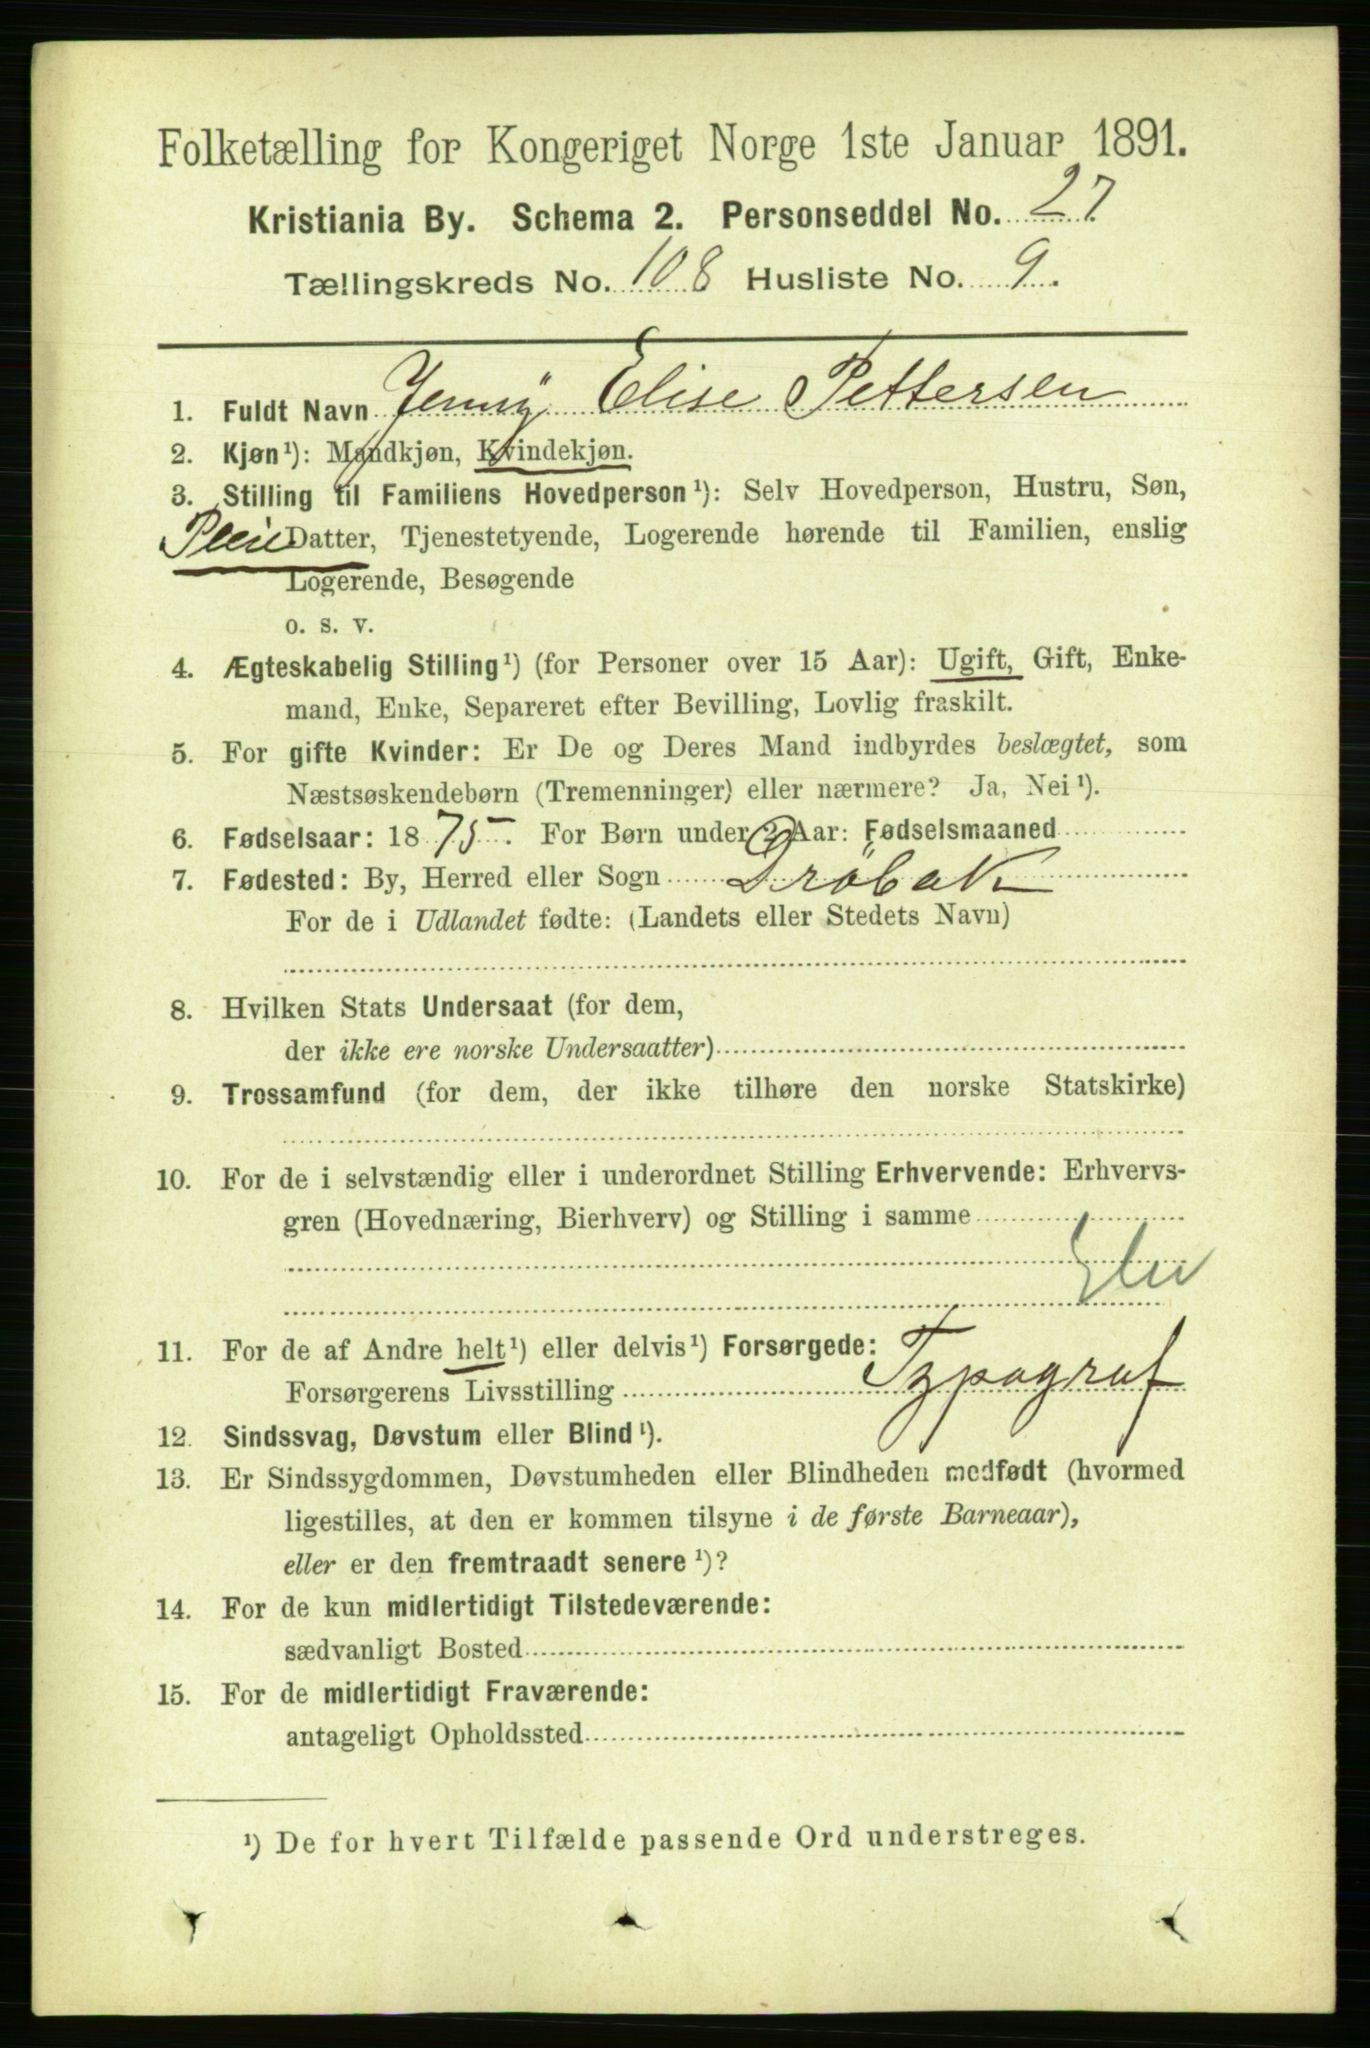 Folketælling for Kongeriget Norge 1ste Januar 1891.
Kristiania By. Schema 2. Personseddel No. 27.
Tællingskreds No. 108 Husliste No. 9.
1. Fuldt Navn Jenny Elise Pettersen
2. Kjøn¹): Mandkjøn, Kvindekjøn.
3. Stilling til Familiens Hovedperson¹): Selv Hovedperson, Hustru, Søn,
Pleie Datter, Tjenestetyende, Logerende hørende til Familien, enslig
Logerende, Besøgende
o. s. v.
4. Ægteskabelig Stilling¹) (for Personer over 15 Aar): Ugift, Gift, Enke-
mand, Enke, Separeret efter Bevilling, Lovlig fraskilt.
5. For gifte Kvinder: Er De og Deres Mand indbyrdes beslægtet, som
Næstsøskendebørn (Tremenninger) eller nærmere? Ja, Nei¹).
6. Fødselsaar: 1875. For Børn under 2 Aar: Fødselsmaaned
7. Fødested: By, Herred eller Sogn Dröbak
For de i Udlandet fødte: (Landets eller Stedets Navn)
8. Hvilken Stats Undersaat (for dem,
der ikke ere norske Undersaatter)
9. Trossamfund (for dem, der ikke tilhøre den norske Statskirke)
10. For de i selvstændig eller i underordnet Stilling Erhvervende: Erhvervs-
gren (Hovednæring, Bierhverv) og Stilling i samme
11. For de af Andre helt¹) eller delvis¹) Forsørgede:
Forsørgerens Livsstilling Typograf
12. Sindssvag, Døvstum eller Blind¹).
13. Er Sindssygdommen, Døvstumheden eller Blindheden medfødt (hvormed
ligestilles, at den er kommen tilsyne i de første Barneaar),
eller er den fremtraadt senere¹)?
14. For de kun midlertidigt Tilstedeværende:
sædvanligt Bosted
15. For de midlertidigt Fraværende:
antageligt Opholdssted
¹) De for hvert Tilfælde passende Ord understreges.